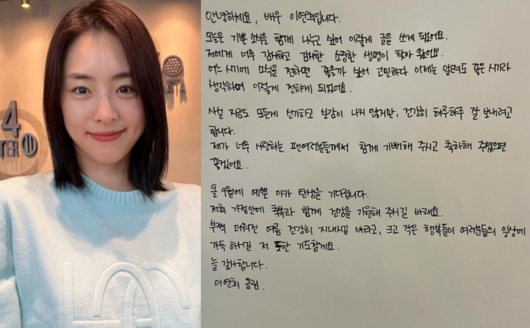 4
안녕하세요, 배우 이연희입니다.
오늘은 기쁜 소식을 함께 나누고 싶어 이렇게 글을 쓰게 됐어요.
저에게 너무 감사하고 소중한 생명이 찾아 왔어요.
어느 시기에 소식을 전하면 좋을까 싶어 고민하다 이제는 알려도 좋은 시기라
생각하며 이렇게 전하게 되었어요.
사실 지금도 모든게 신기하고 실감이 나지 않지만, 건강히 하루하루 잘 보내려고
합니다.
제가 너무 사랑하는 팬여러분들께서 함께 기뻐해 주시고 축하해 주셨으면
좋겠어요.
올 9월에 예쁜 아가 탄생을 기다립니다.
저희 가정안에 축복과 함께 건강을 기원해 주시길 바래요.
부쩍 더워진 여름 건강히 지내시길 바라고, 크고 작은 행복들이 여러분들의 일상에
가득 하시길 저 또한 기도할게요.
늘 감사합니다.
이연희 올림.